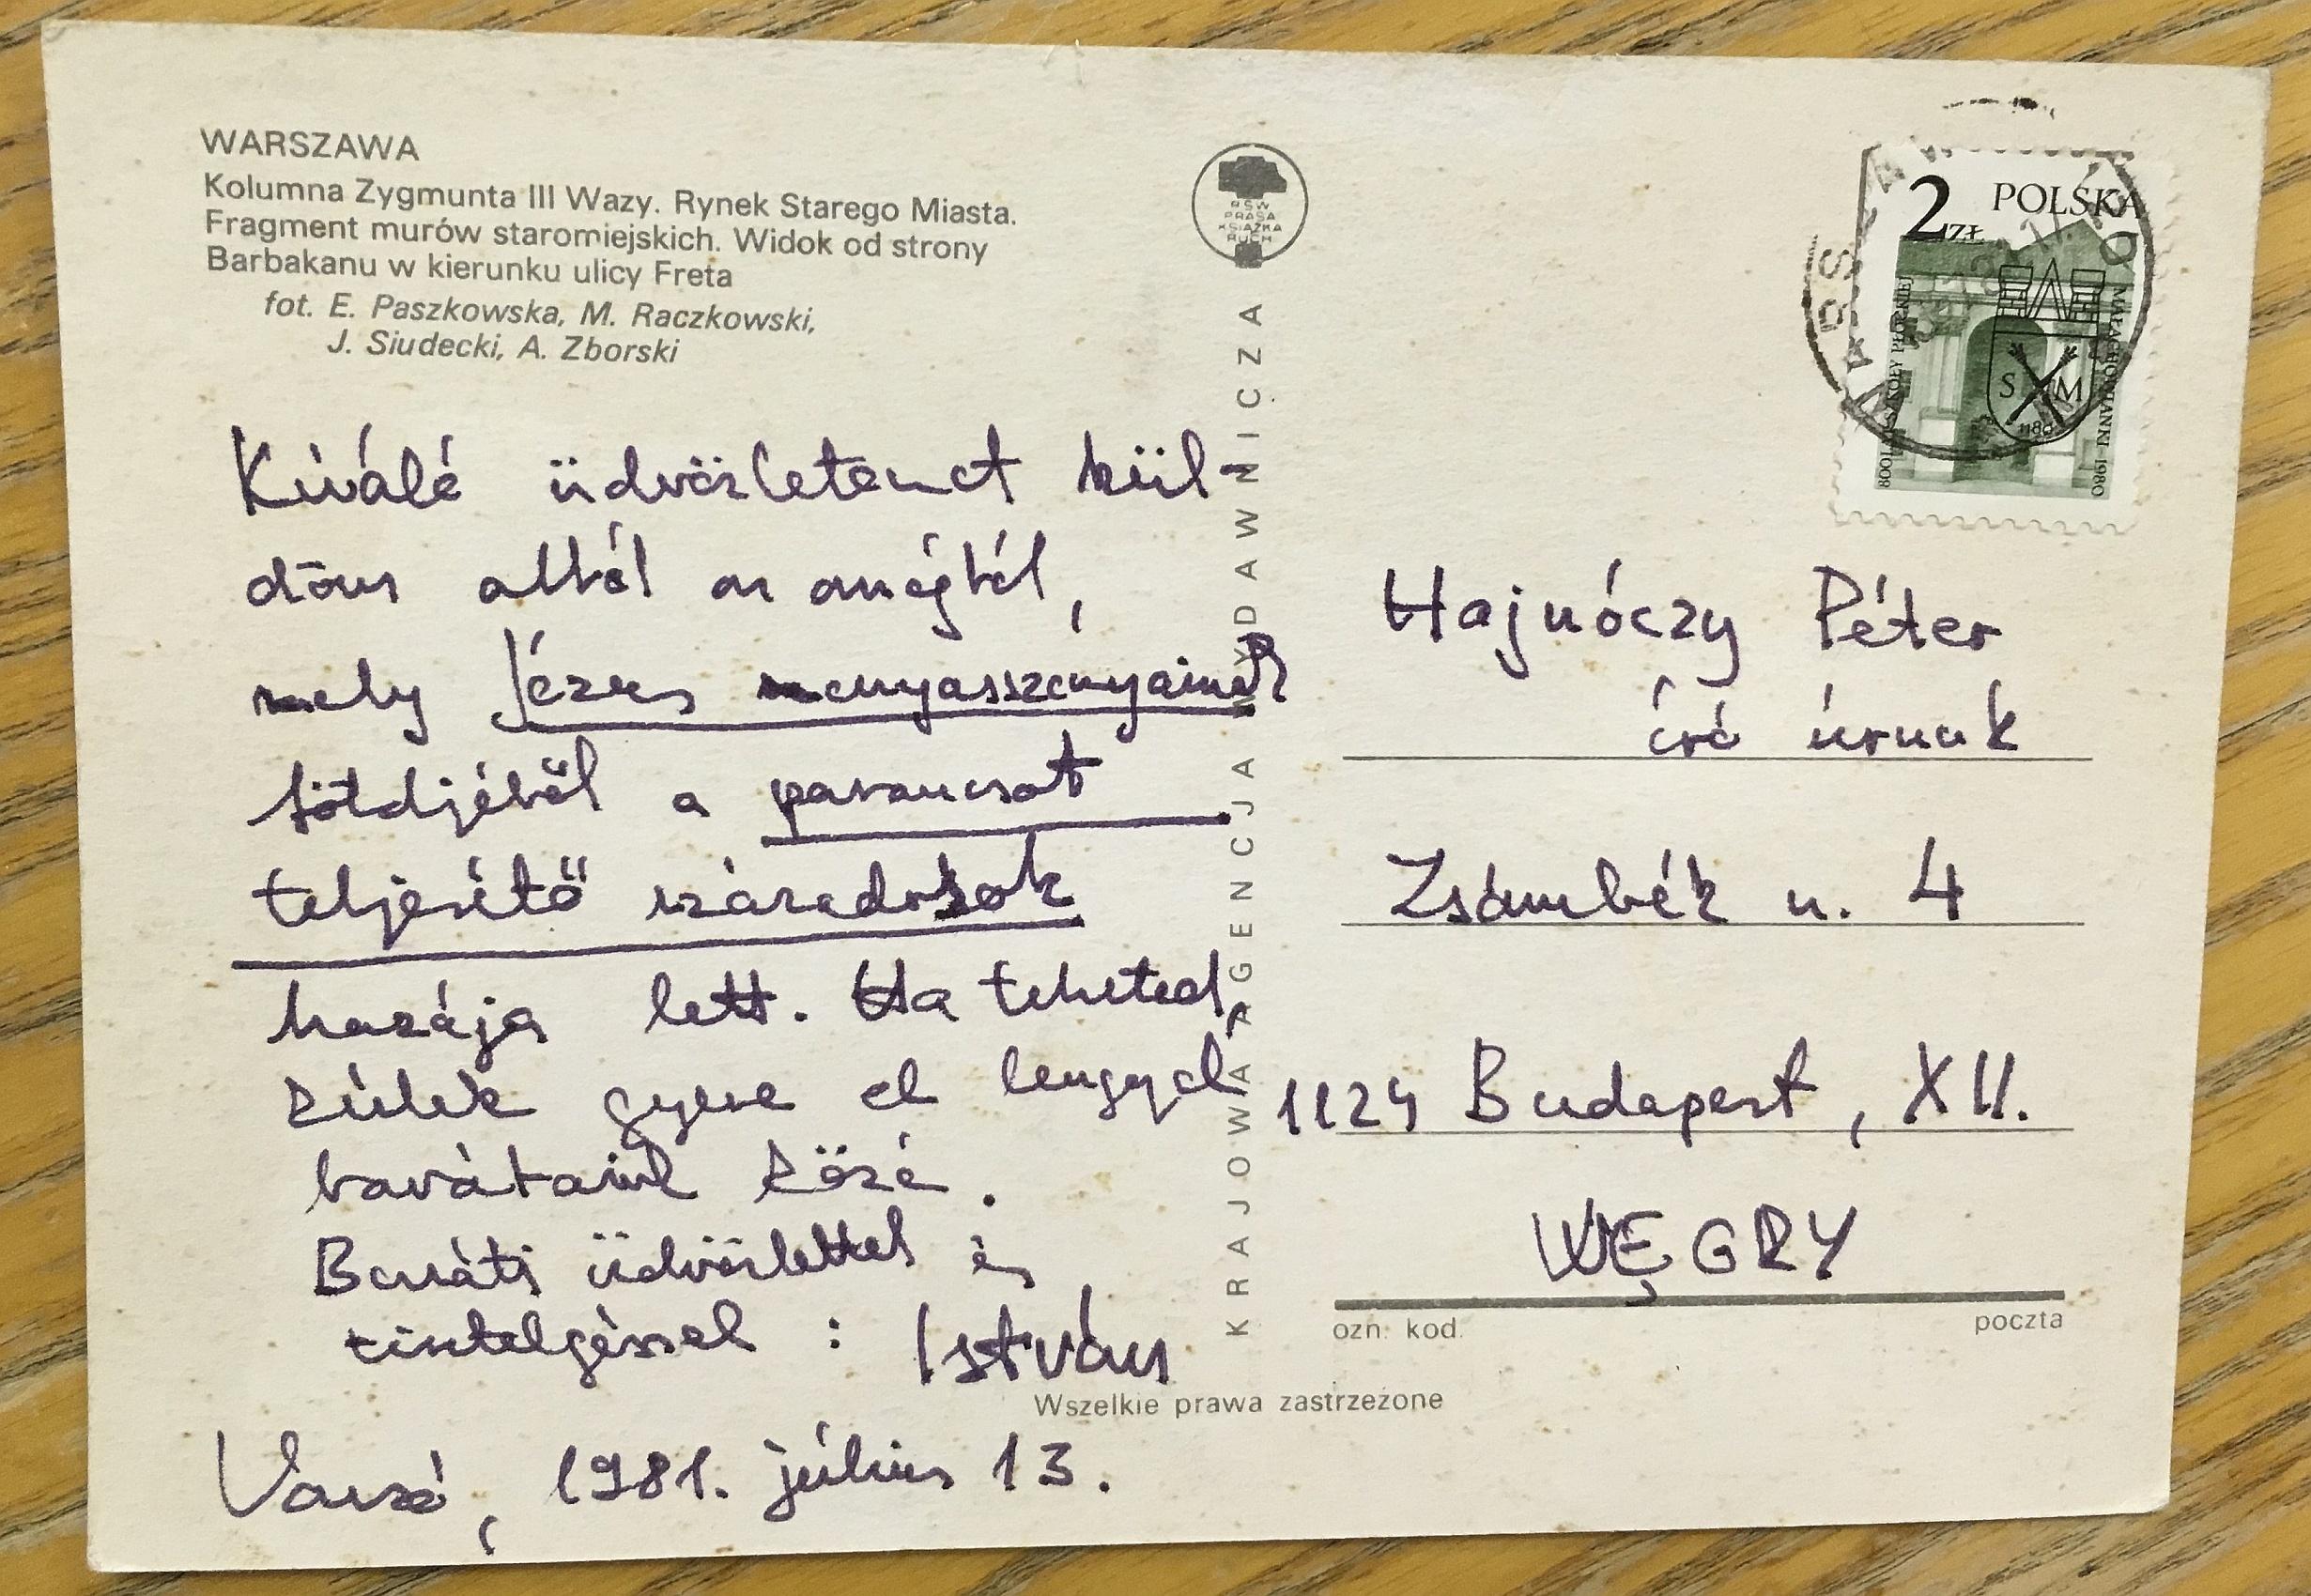 WARSZAWA
Kolumna Zygmunta III Wazy. Rynek Starego Miasta.
Fragment murów staromiejskich. Widok od strony
Barbakanu w kierunku ulicy Freta
fot. E. Paszkowska, M. Raczkowski,
J. Siudecki, A. Zborski
Kiváló üdvözletemet kül-
döm abból az országból,
mely Jézus menyasszonyainak
földjéből a parancsot
teljesítő századosok
hazája lett. Ha teheted,
kérlek gyere el lengyel
barátaink közé.
Baráti üdvözlettel és
tisztelgéssel: István
Varsó, 1981. július 13.
RSW
PRASA
KSIĄŻKA
RUCH
KRAJOWA AGENCJA WYDAWNICZA
2 ZŁ POLSKA
MAŁACHOWIANKI-1980
S M
1180
WARSZAWA
Hajnóczy Péter
író úrnak
Zsámbék u. 4
1124 Budapest, XII.
WĘGRY
ozn. kod. poczta
Wszelkie prawa zastrzeżone